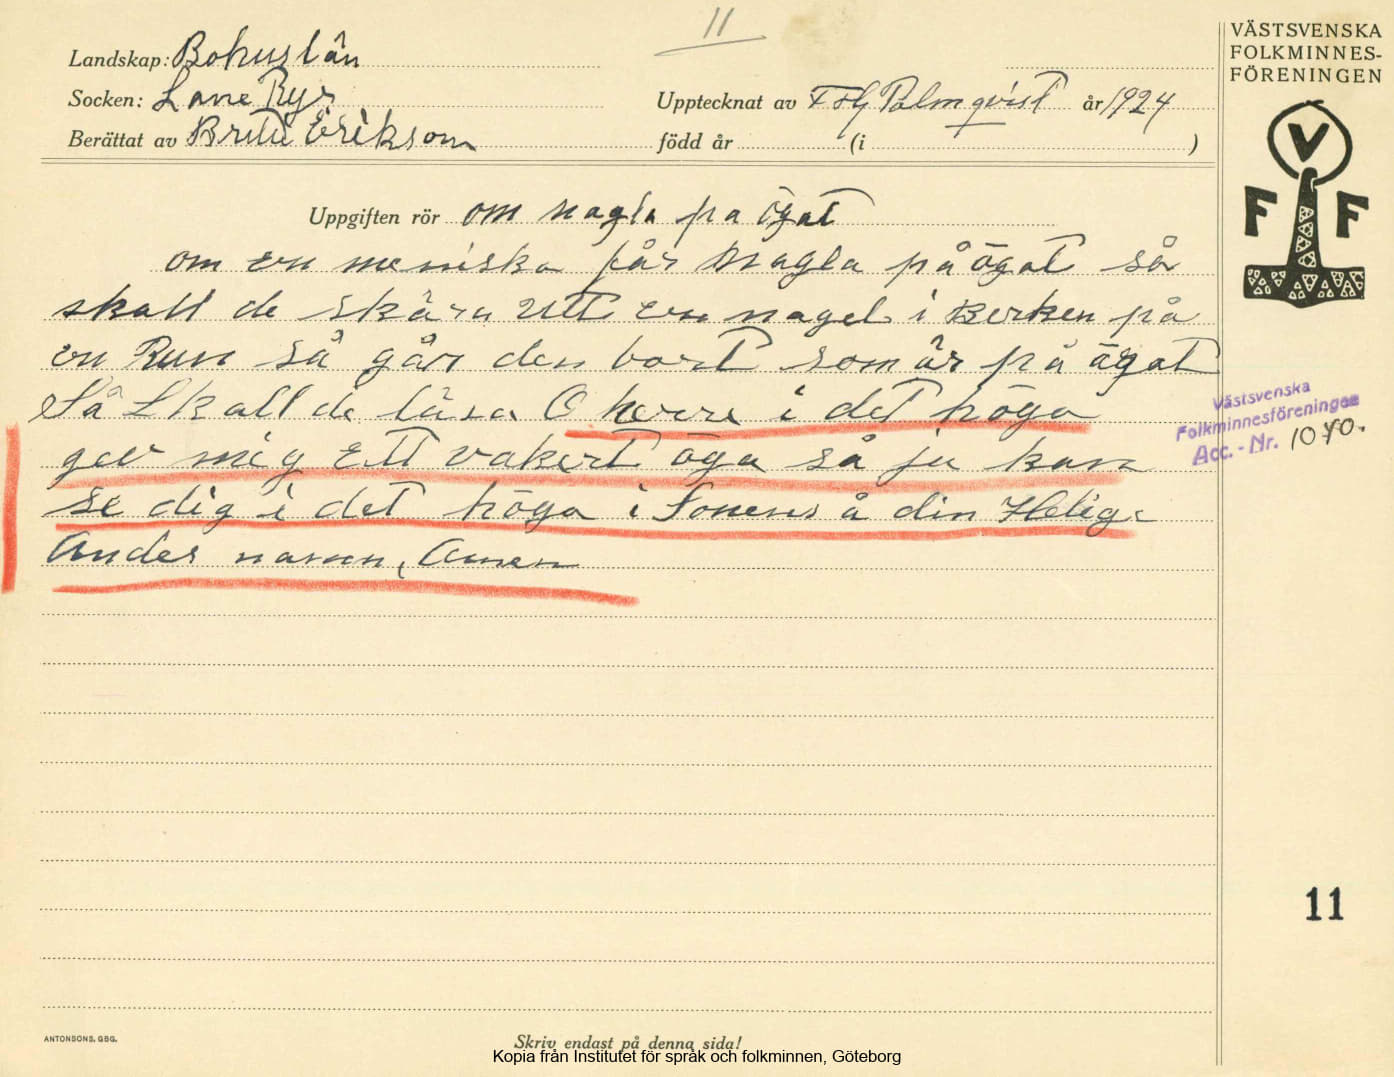 11
VÄSTSVENSKA
FOLKMINNES-
FÖRENINGEN
Landskap: Bohuslän
Socken: Lane Ryr
Upptecknat av Palmqvist år 1924
Berättat av Brita Erikson
född år (i )
V
F F
Uppgiften rör om nagla pa ögat
om en meniska får Nagla på ögat så
skall de skära Utt en nagel i Berken på
en Run så går den bort som är på ögat
Så Skall de läsa O herre i det höga
gev mig Ett vakert öga så ja kan
se dig i det höga i Sonens å din Helige
Andes namn, Amen
Västsvenska
Folkminnesföreningen
Acc. - Nr. 1040.
11
ANTONSONS, GBG.
Skriv endast på denna sida!
Kopia från Institutet för språk och folkminnen, Göteborg